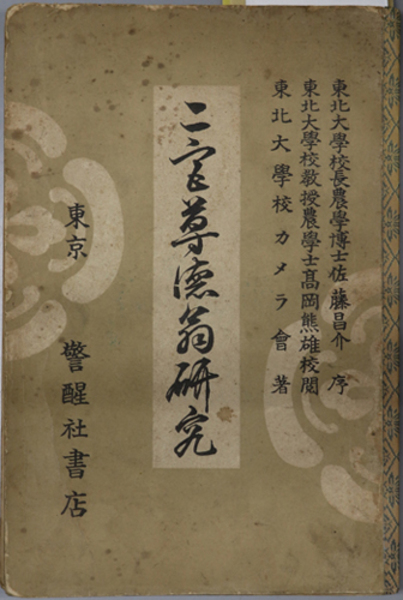 東北大學校長農學博士佐藤昌介 序
東北大學校教授農學士髙岡熊雄校閲
東北大學校カメラ會 著
二宮尊德翁研究
東京 警醒社書店